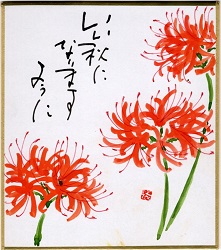 いい秋に
なります
ように